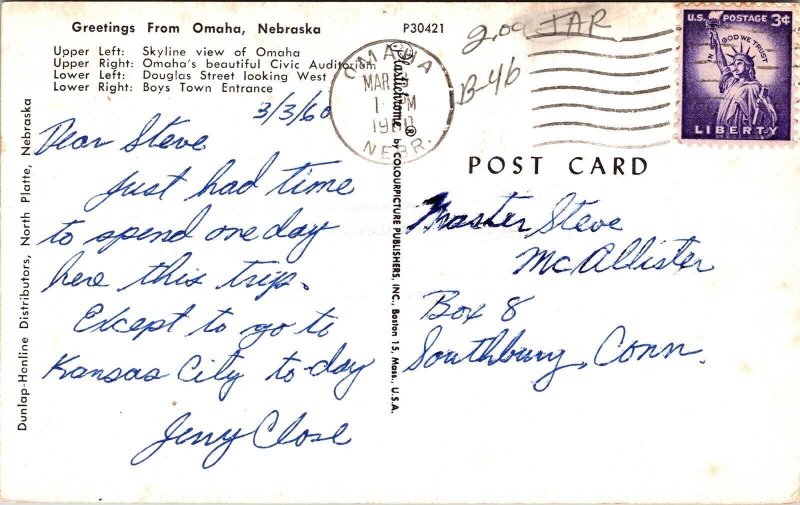 Greetings From Omaha, Nebraska
P30421
Upper Left: Skyline view of Omaha
Upper Right: Omaha's beautiful Civic Auditorium
Lower Left: Douglas Street looking West
Lower Right: Boys Town Entrance
2.00 IAR
B-46
OMAHA
MAR
1 PM
1960
NEBR.
U.S. POSTAGE 3¢
IN GOD WE TRUST
LIBERTY
POST CARD
3/3/60
Dear Steve
Just had time
to spend one day
here this trip.
Except to go to
Kansas City to-day
Jerry Close
Master Steve
McAllister
Box 8
Southbury, Conn.
Plastichrome ® by COLOURPICTURE PUBLISHERS, INC., Boston 15, Mass., U.S.A.
Dunlap-Henline Distributors, North Platte, Nebraska